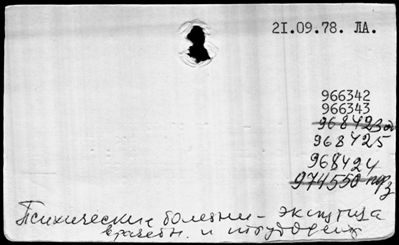 21.09.78. ЛА.
966342
966343
968423
968425
968424
974550
Психические болезни – экспертиза
врачебн. и трудовая